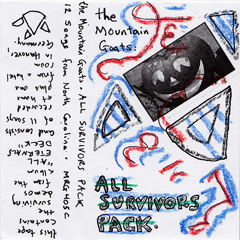 this tape
contains
the
surviving
demos
from the
album
"ALL
ETERNALS
DECK"
and consists
of 11 songs
recorded
at home
plus one
from a hotel
room
in Hanover,
Germany.
the Mountain Goats · ALL SURVIVORS PACK
12 Songs from North Carolina · MRG405C
the
Mountain
Goats:
ALL
SURVIVORS
PACK.